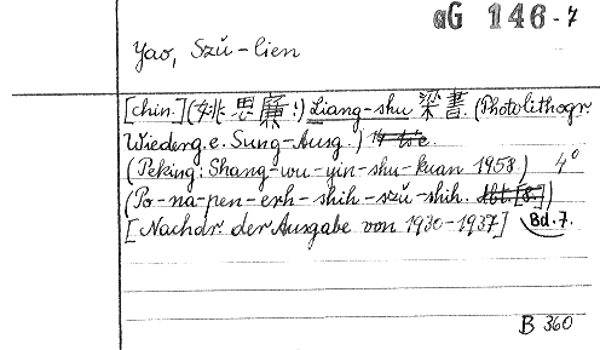 aG 146-7
Yao, Szŭ-lien
[chin.] (姚思廉:) Liang-shu 梁書. (Photolithogr.
Wiederg. e. Sung-Ausg.)
(Peking: Shang-wu-yin-shu-kuan 1958.) 4°
(Po-na-pen-erh-shih-szŭ-shih. Abt. [8.])
[Nachdr. der Ausgabe von 1930-1937] Bd. 7.
B 360